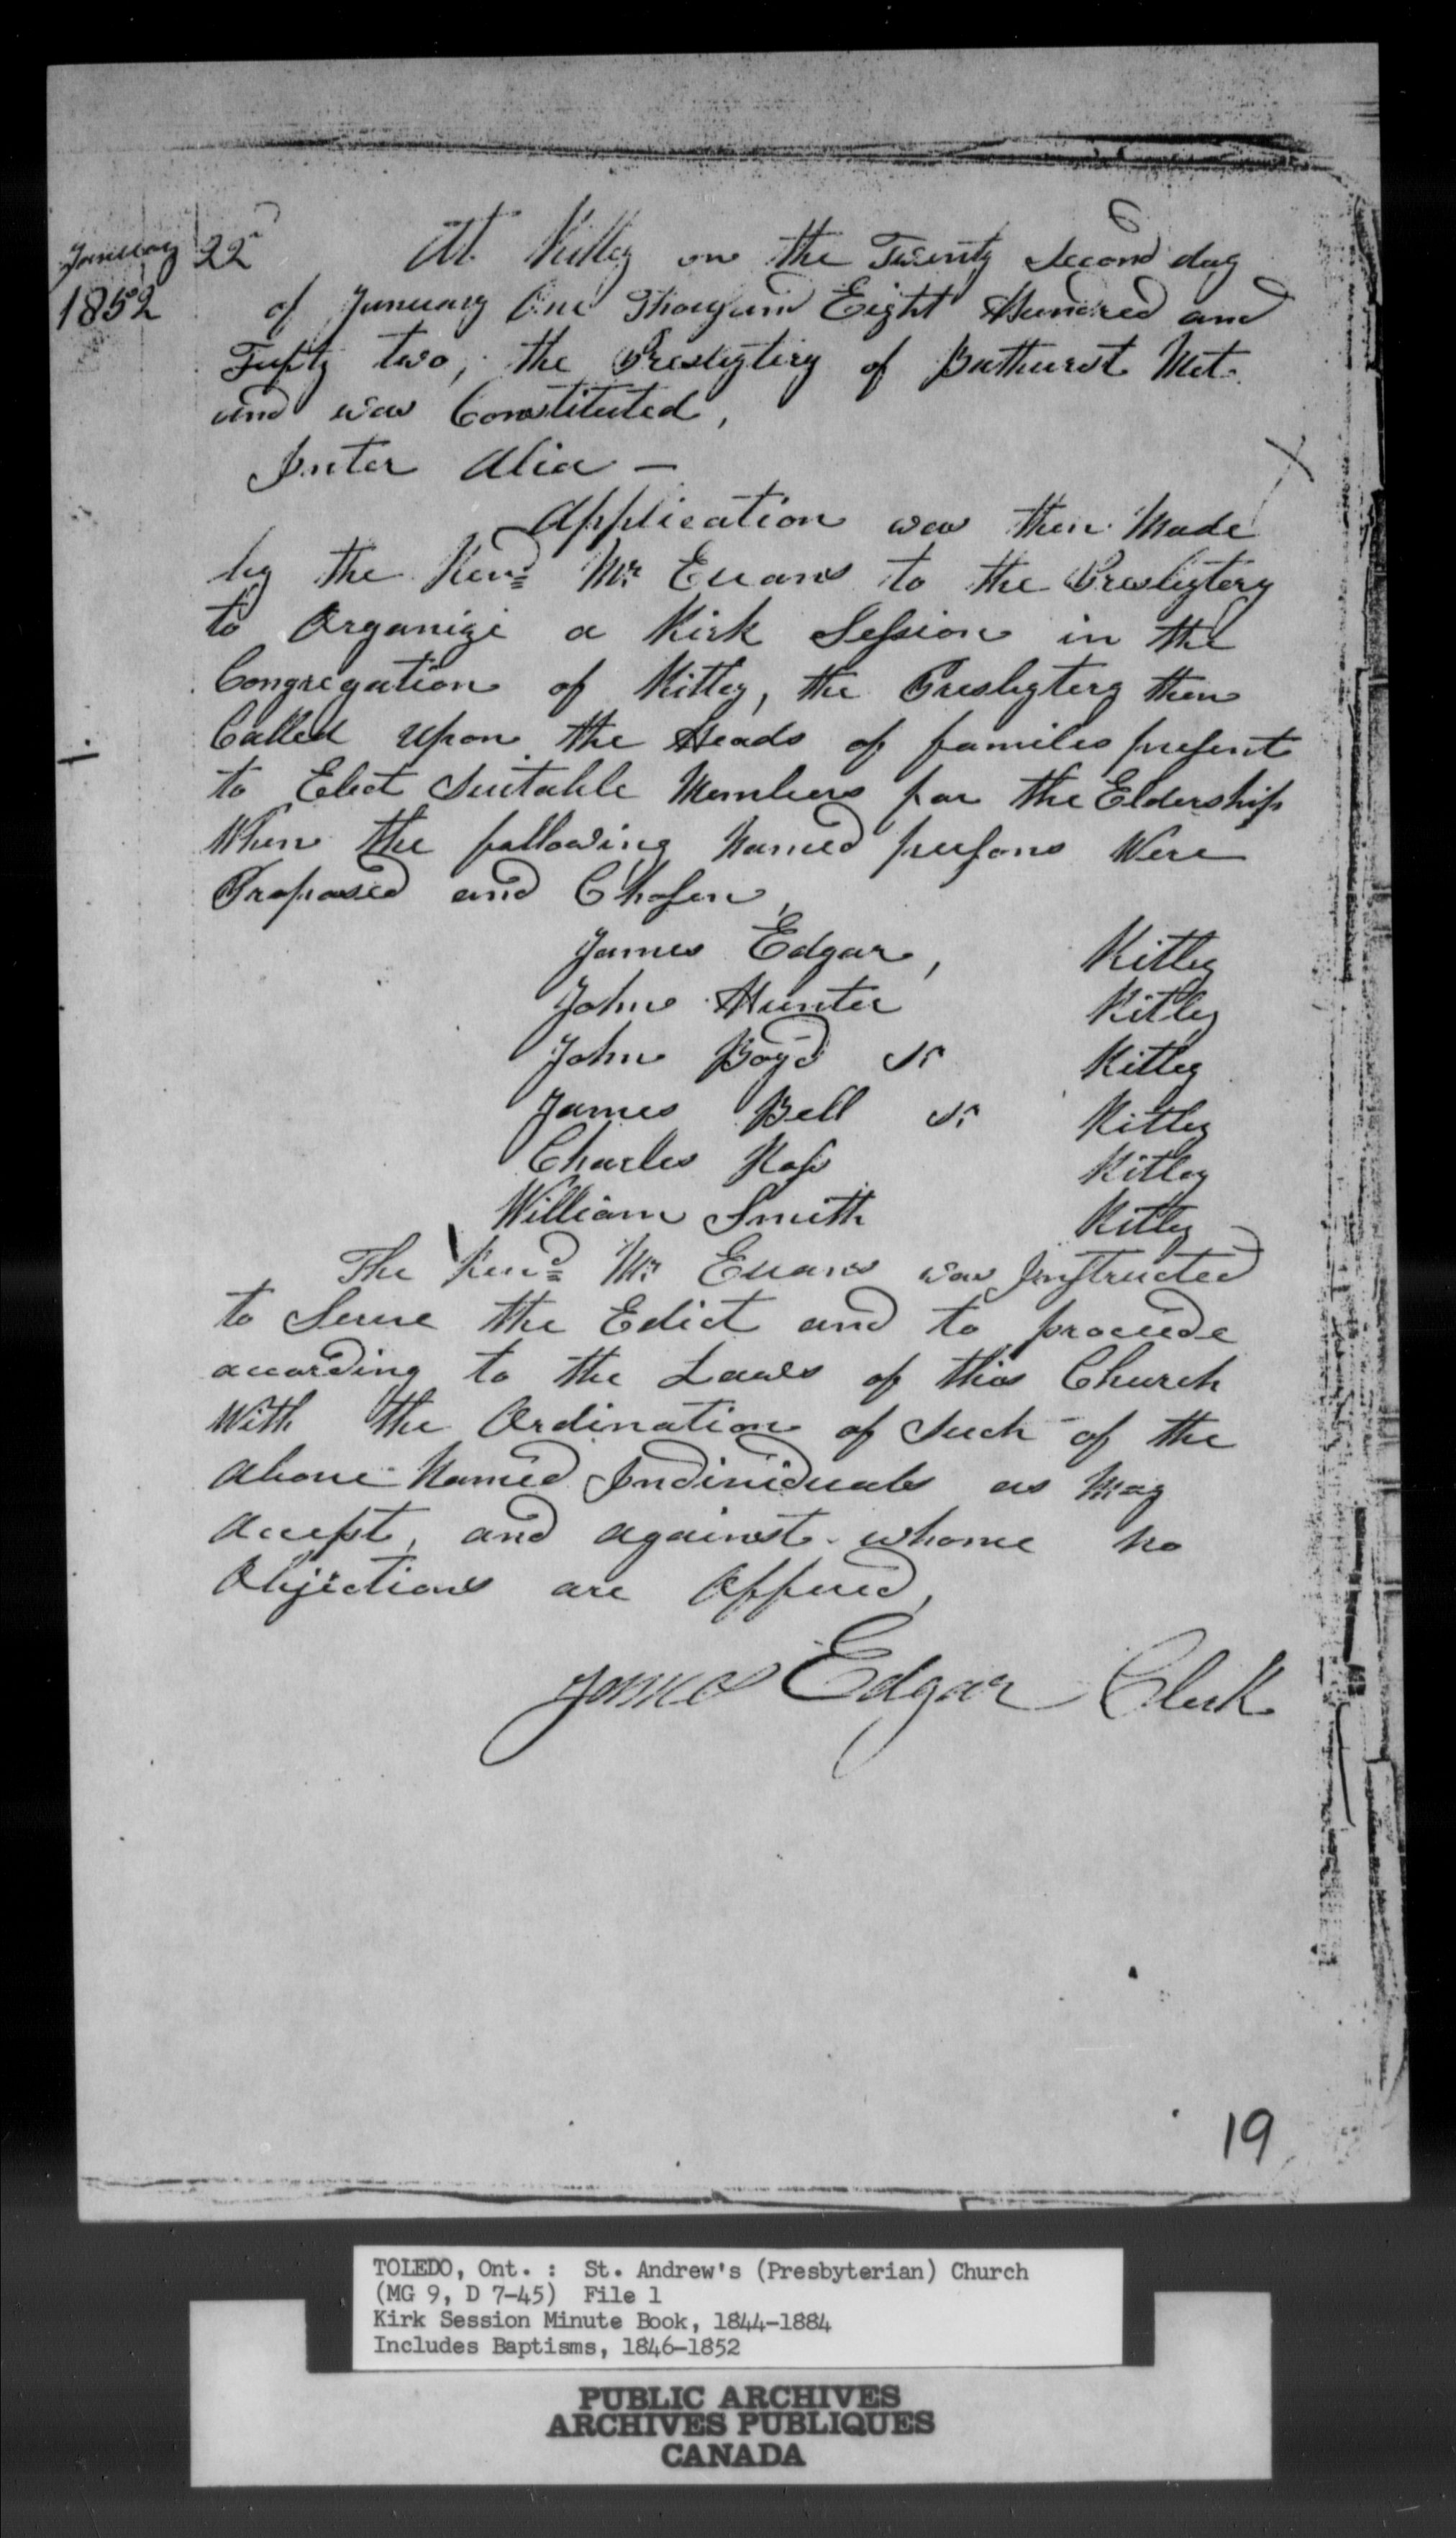 January 22d
1852
At Kitley on the Twenty Second day
of January One Thousand Eight Hundred and
Fifty two, the Presbytery of Bathurst Met
and was Constituted,
Inter Alia —
Application was then Made
by the Revd Mr Evans to the Presbytery
to Organize a Kirk Session in the
Congregation of Kitley, the Presbytery then
Called upon the Heads of families present
to Elect Suitable Members for the Eldership
When the following Named persons Were
Proposed and Chosen,
James Edgar, Kitley
John Hunter Kitley
John Boyd Sr Kitley
James Bell Sr Kitley
Charles Ross Kitley
William Smith Kitley
The Revd Mr Evans was Instructed
to Serve the Edict and to proceede
according to the Laws of this Church
With the Ordination of Such of the
above Named Individuals as May
accept, and against whome no
Objections are Offered,
James Edgar Clerk
19
TOLEDO, Ont. : St. Andrew's (Presbyterian) Church
(MG 9, D 7-45) File 1
Kirk Session Minute Book, 1844-1884
Includes Baptisms, 1846-1852
PUBLIC ARCHIVES
ARCHIVES PUBLIQUES
CANADA